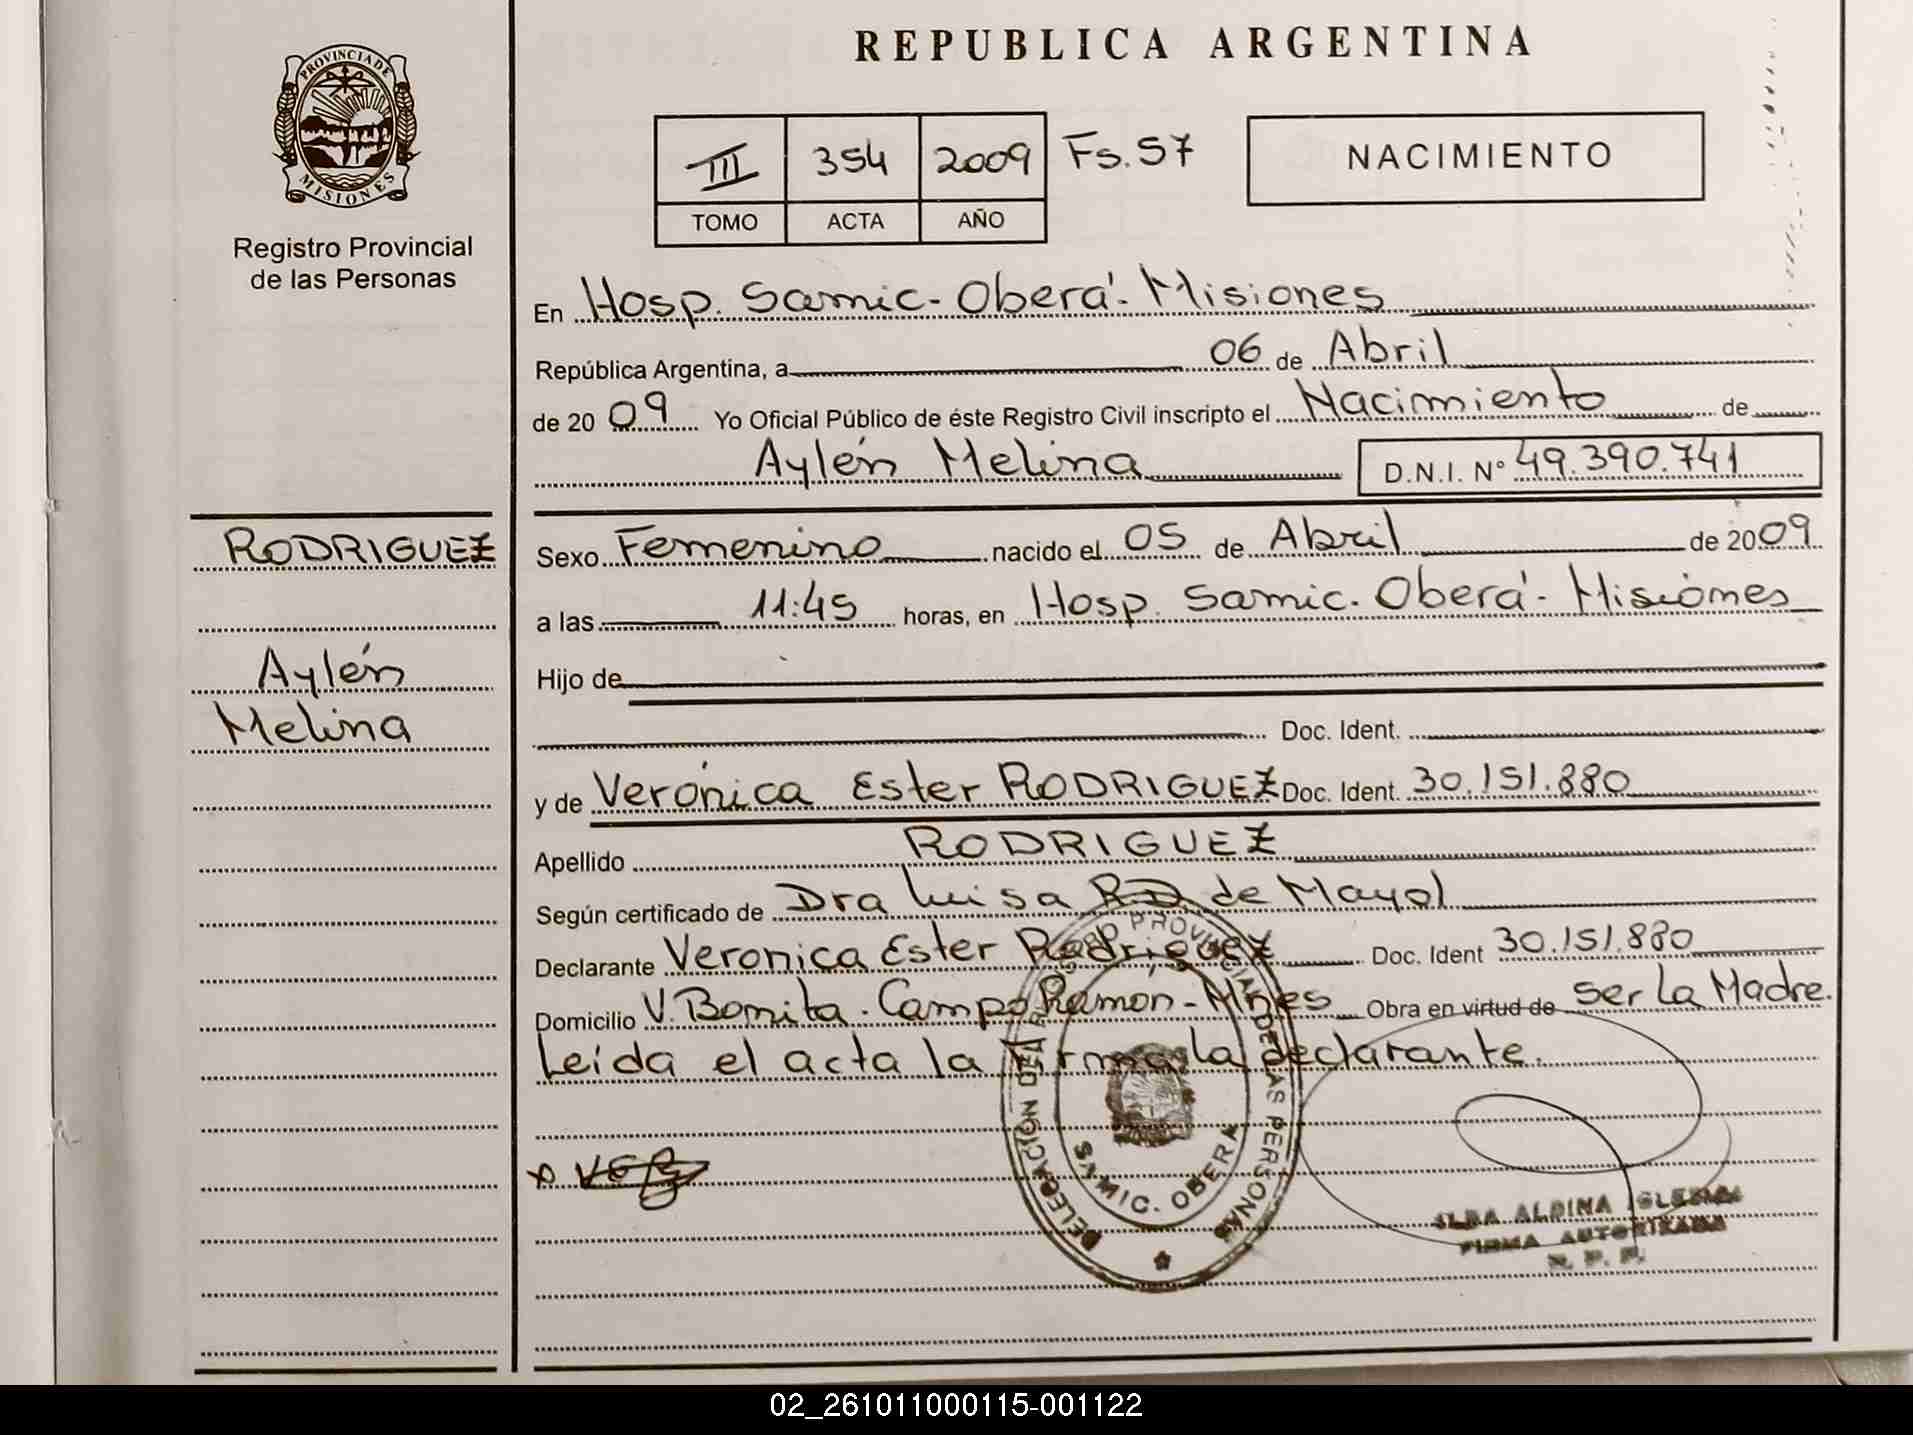 REPUBLICA ARGENTINA
PROVINCIA DE
MISIONES
Registro Provincial
de las Personas
III 354 2009 Fs. 57
TOMO ACTA AÑO
NACIMIENTO
En Hosp. Samic - Oberá - Misiones
República Argentina, a 06 de Abril
de 2009 Yo Oficial Público de éste Registro Civil inscripto el Nacimiento de
Aylén Melina D.N.I. N° 49.390.741
RODRIGUEZ
Aylén
Melina
Sexo Femenino nacido el 05 de Abril de 2009
a las 11:45 horas, en Hosp. Samic. Oberá - Misiones
Hijo de
Doc. Ident.
y de Verónica Ester RODRIGUEZ Doc. Ident. 30.151.880
Apellido RODRIGUEZ
Según certificado de Dra Luisa de Mayol
Declarante Veronica Ester Rodriguez Doc. Ident 30.151.880
Domicilio V. Bonita - Campo Ramón - Mnes Obra en virtud de ser La Madre.
Leida el acta la firma la declarante.
DELEGACION DE REGISTRO PROVINCIAL DE LAS PERSONAS
SAMIC. OBERA
ALBINA IGLESIAS
FIRMA AUTORIZADA
R. P. P.
02_261011000115-001122